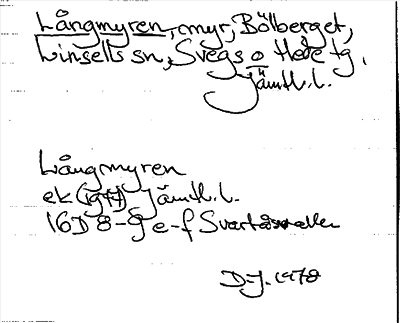 Långmyren, myr, Bölberget,
Linsells sn, Svegs o Hede tg,
Jämtl.l.
Långmyren
ek (1977) Jämtl.l.
16D 8-9 e-f Svartåsvallen
D-J. 1978